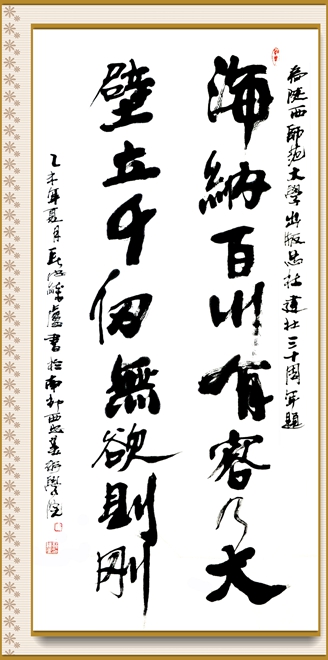 為陝西師範大學出版总社建社三十周年題
海納百川有容乃大
壁立千仞無欲則剛
乙未年夏月
書於南郊西安美術學院